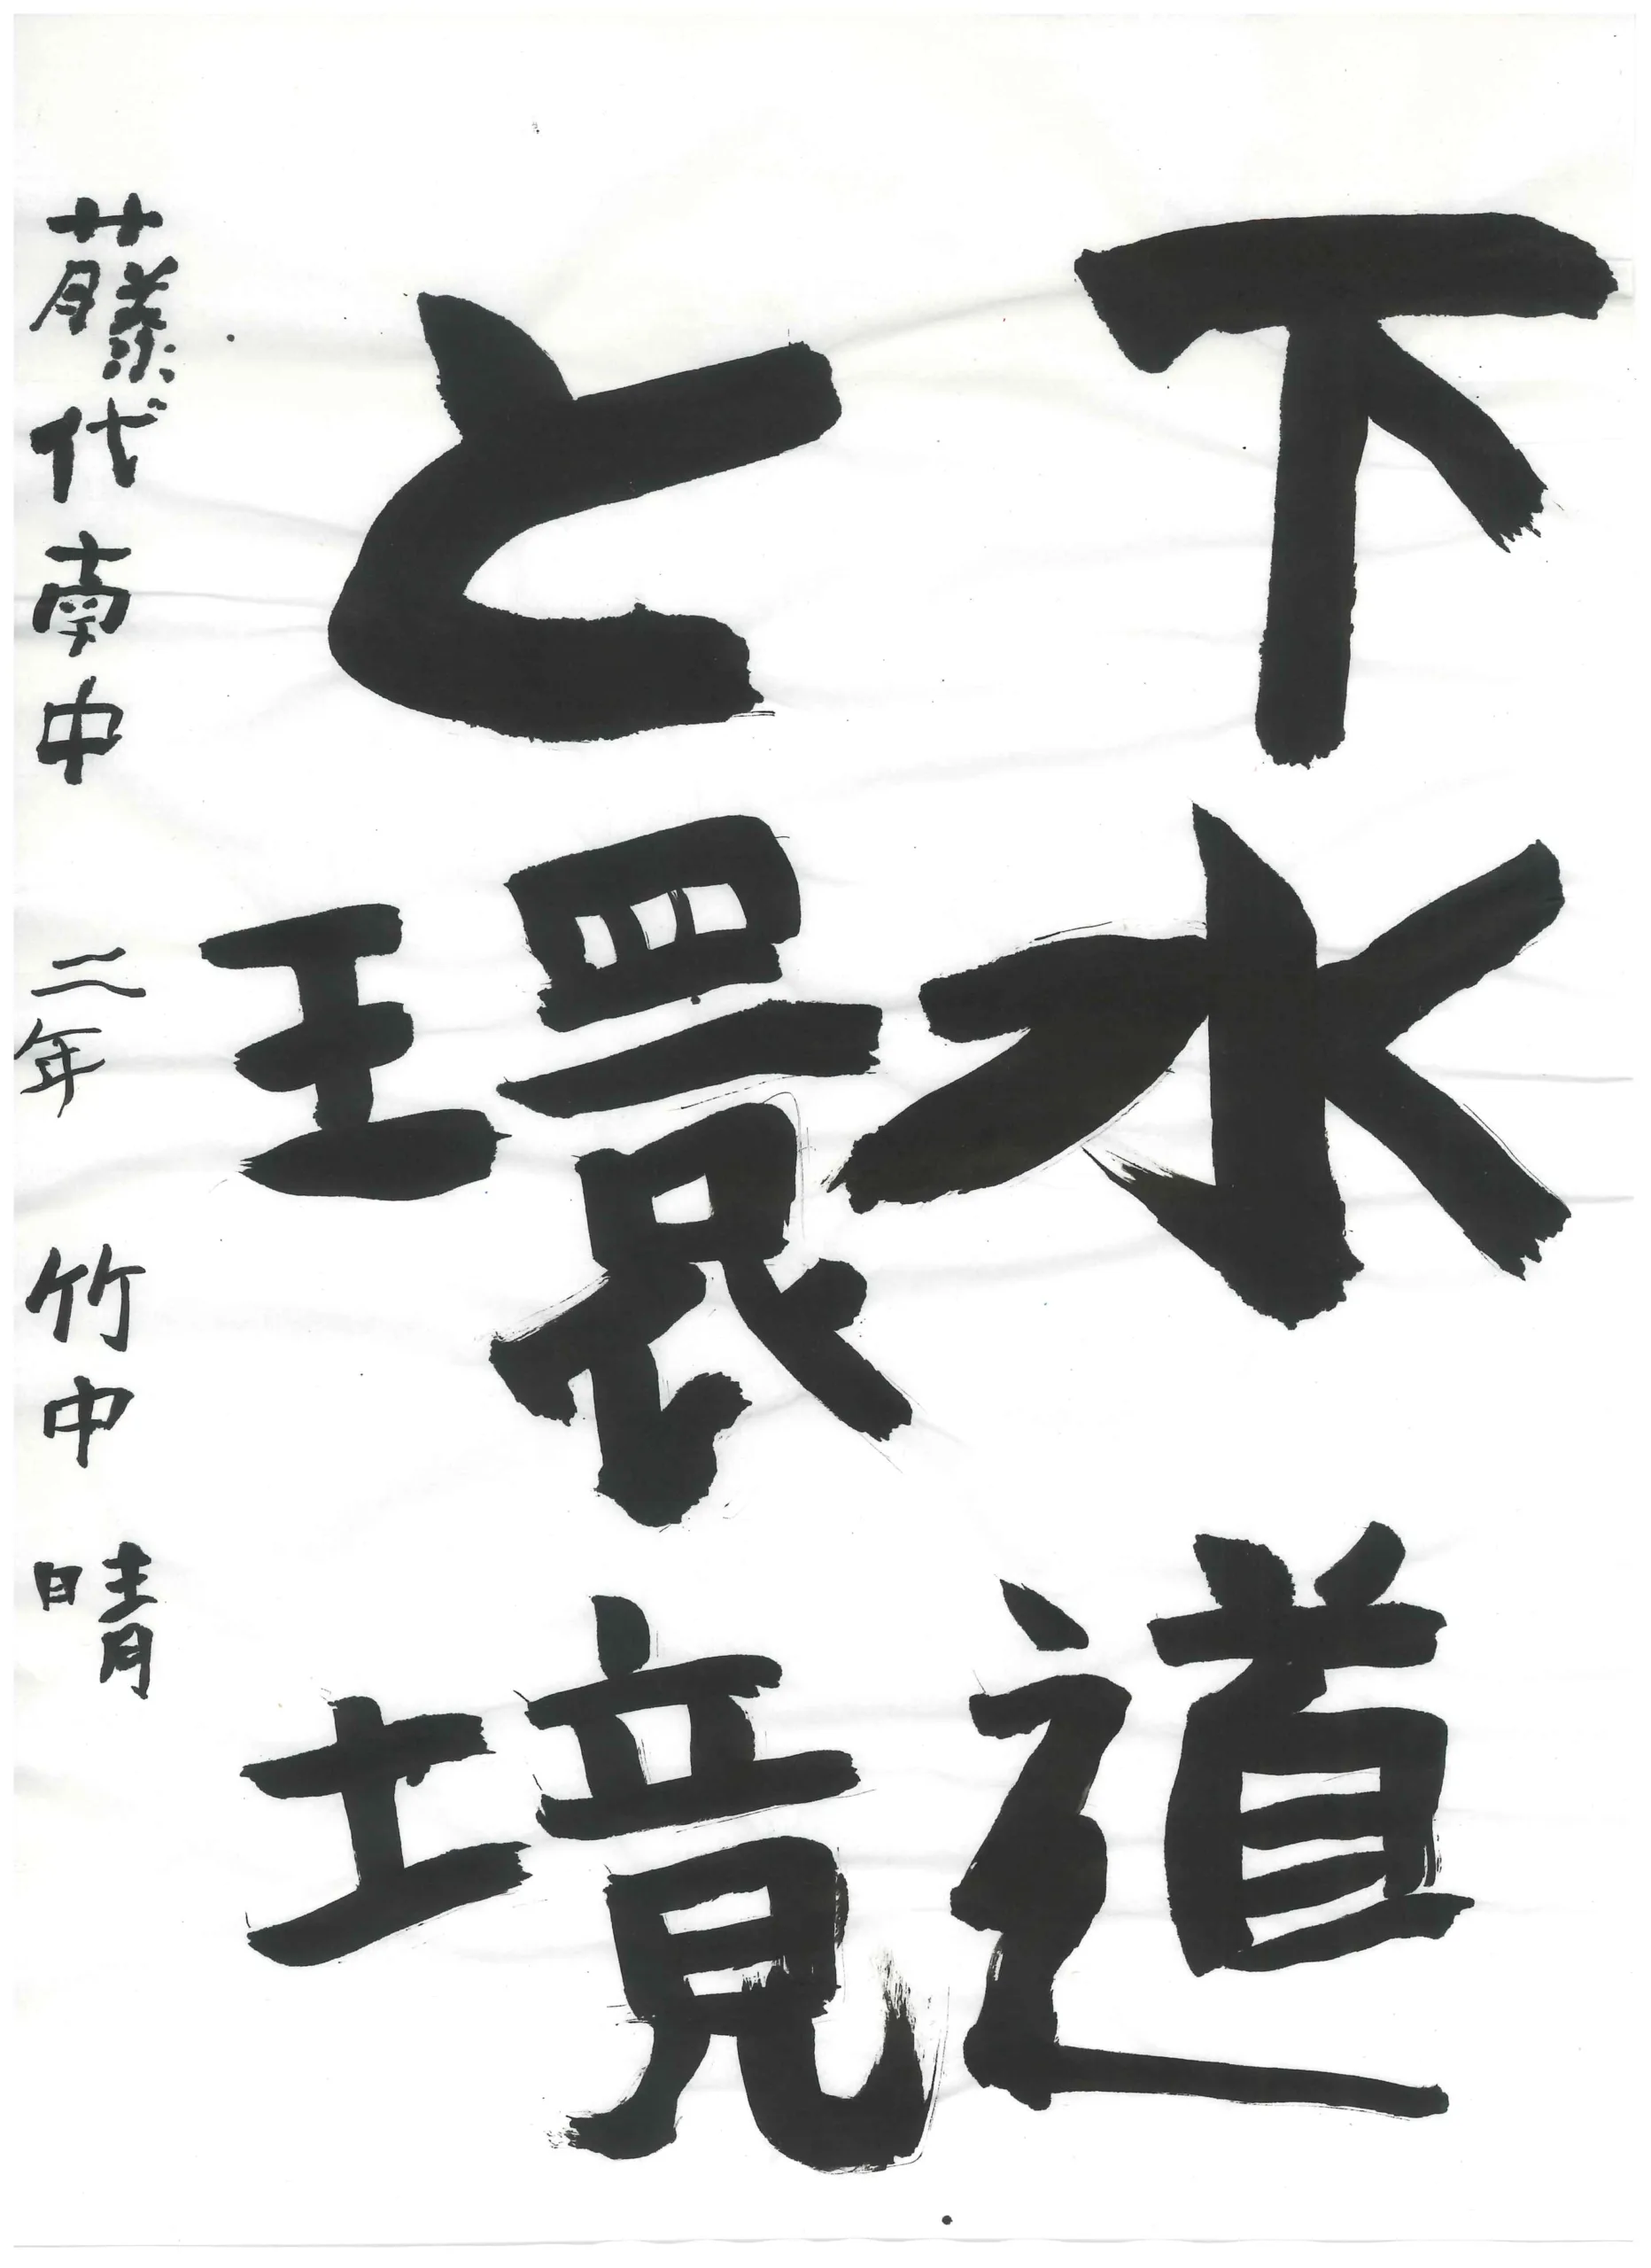 下水道
と環境
藤代南中 二年 竹中 晴